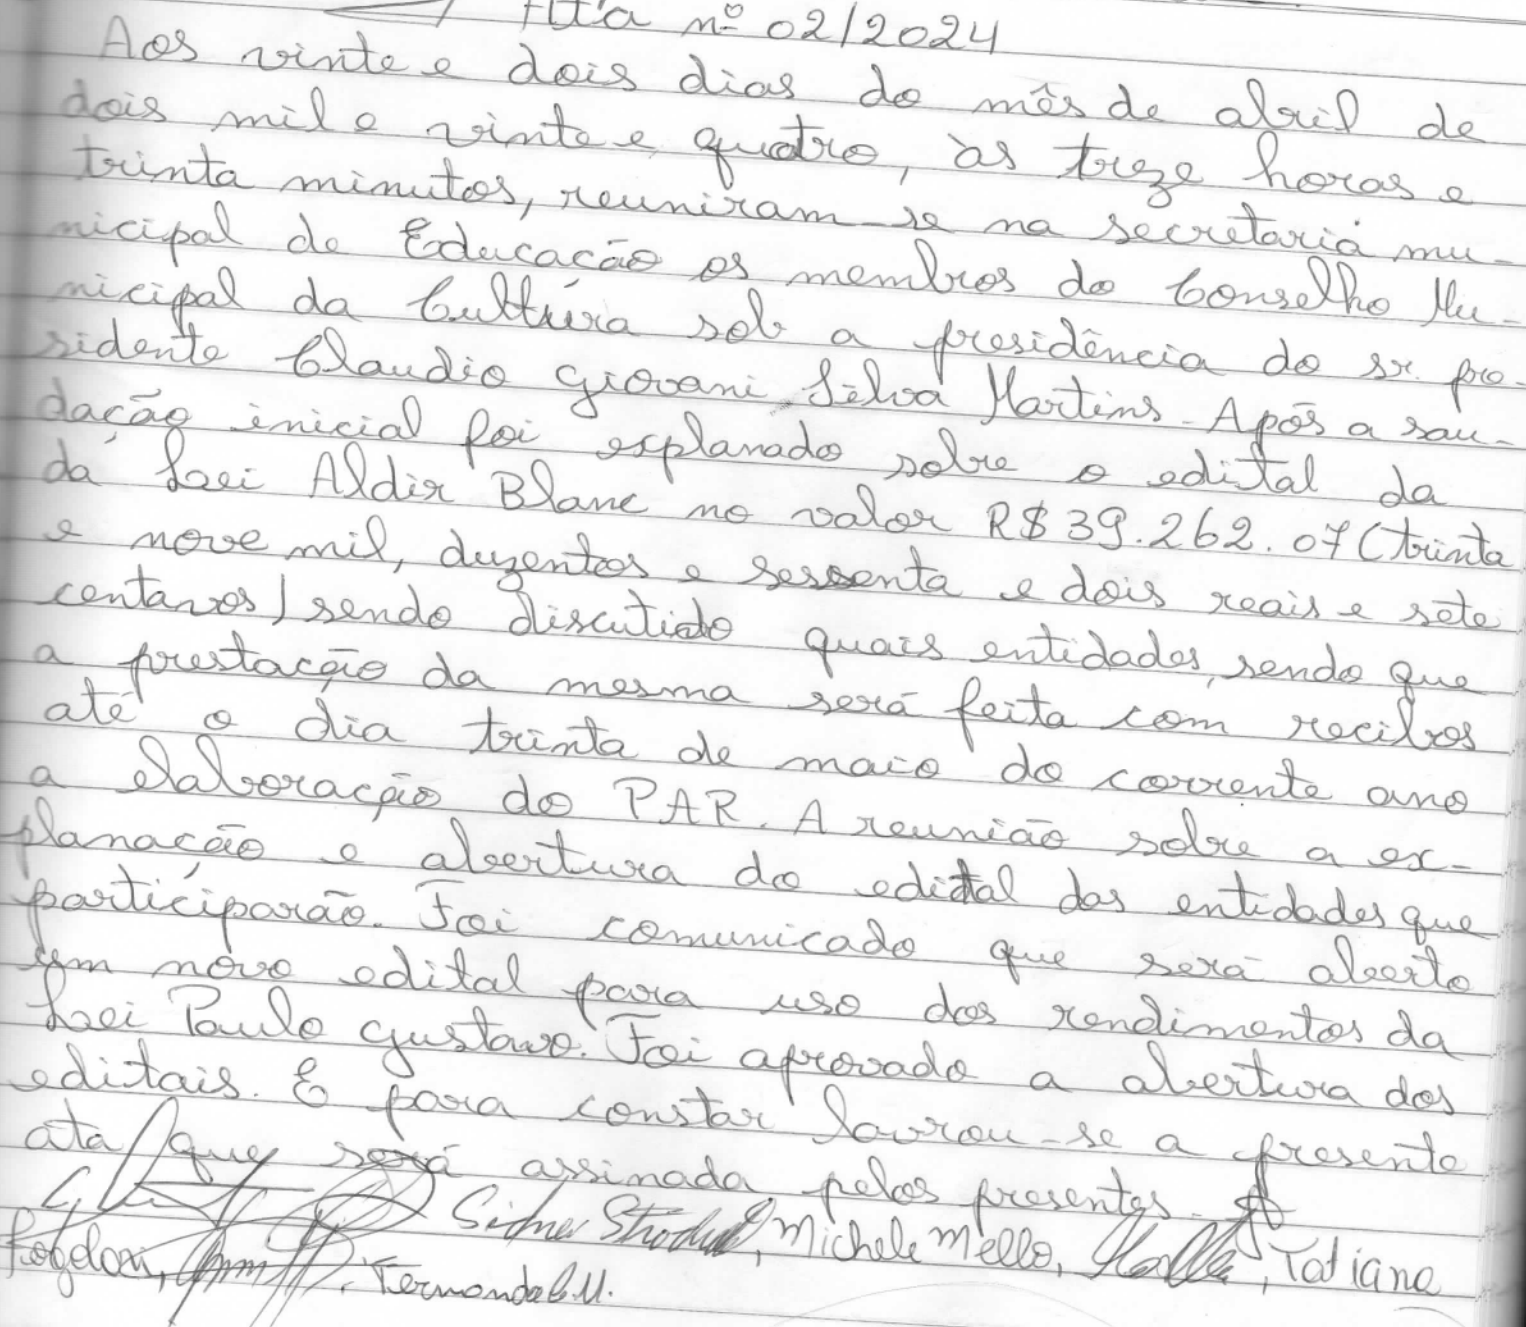 Ata nº 02/2024
Aos vinte e dois dias do mês de abril de
dois mil e vinte e quatro, às treze horas e
trinta minutos, reuniram-se na secretaria mu-
nicipal de Educação os membros do Conselho Mu-
nicipal da Cultura sob a presidência do sr. pre-
sidente Claudio Giovani Silva Martins. Após a sau-
dação inicial foi explanado sobre o edital da
da Lei Aldir Blanc no valor R$ 39.262.07 (trinta
e nove mil, duzentos e sessenta e dois reais e sete
centavos) sendo discutido quais entidades, sendo que
a prestação da mesma será feita com recibos
até o dia trinta de maio do corrente ano
a elaboração do PAR. A reunião sobre a ex-
planação e abertura do edital das entidades que
participarão. Foi comunicado que será aberto
um novo edital para uso dos rendimentos da
Lei Paulo Gustavo. Foi aprovado a abertura dos
editais. E para constar lavrou-se a presente
ata que será assinada pelos presentes.
Sidnei Michele Mello, Tatiana
Fernanda C.M.